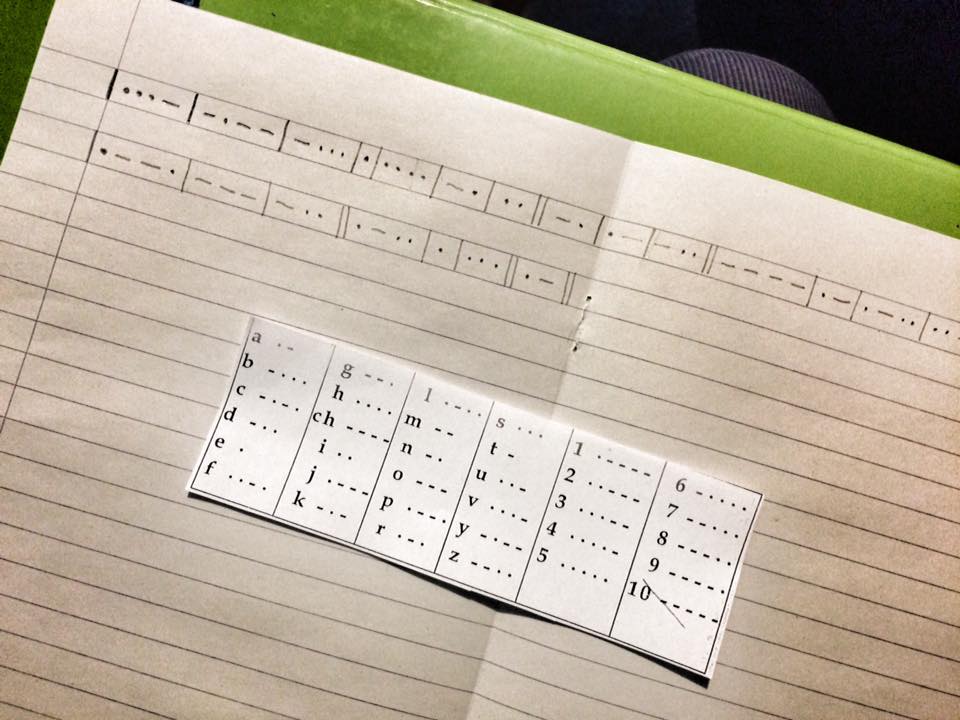 ···− | −·−− | −··· | · | ···· | −· | ·· || −· | ·− | −·· || −−−− | ·− | ·−·· | ··
·−−· | −−− | −·· || ·−·· | · | ··· || ·− ||
a ·-
b -···
c -·-·
d -··
e ·
f ··-·
g --·
h ····
ch ----
i ··
j ·---
k -·-
l ·-··
m --
n -·
o ---
p ·--·
r ·-·
s ···
t -
u ··-
v ···-
y -·--
z --··
1 ·----
2 ··---
3 ···--
4 ····-
5 ·····
6 -····
7 --···
8 ---··
9 ----·
10 -----